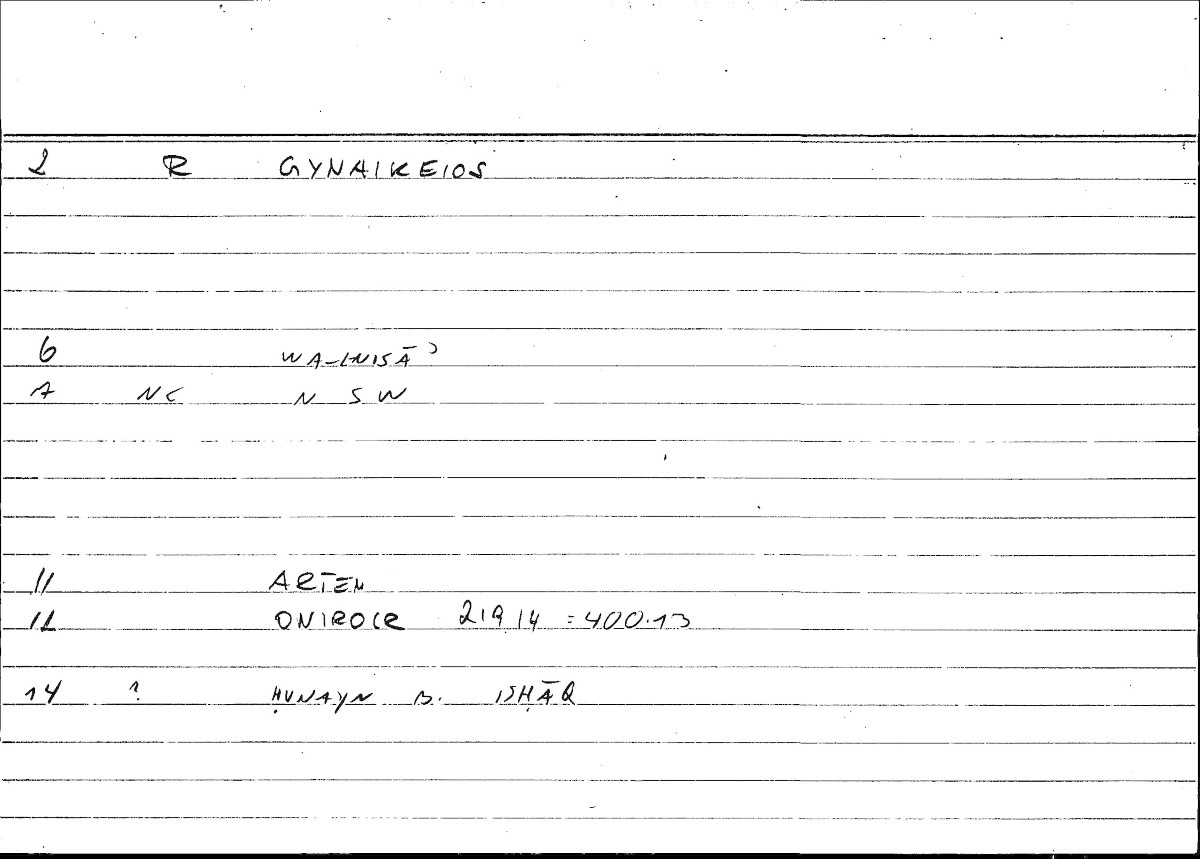 2 R GYNAIKEIOS
6 WA-LNISĀʾ
7 NC N S W
11 ARTEM
12 ONIROCR 219,14 = 400.13
14 ? ḤUNAYN B. ISḤĀQ